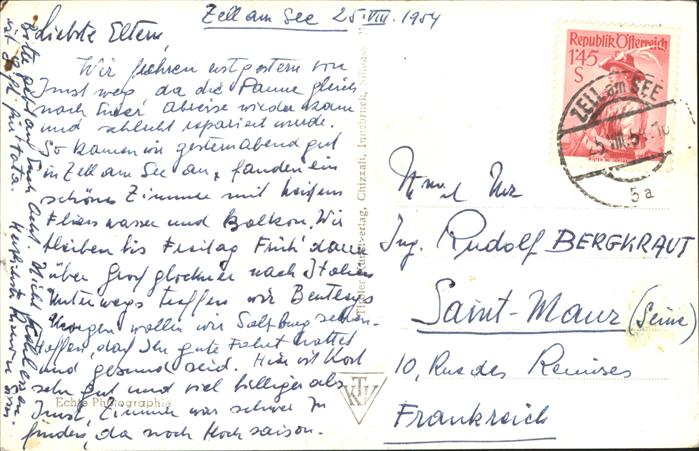 Zell am See 25.VIII.1954
Liebste Eltern,
Wir fuhren erst gestern von
Imst weg da die Panne gleich
nach Eurer Abreise wieder kam
und schlecht repariert wurde.
So kamen wir gestern abend gut
in Zell am See an, fanden ein
schönes Zimmer mit heissem
Fliesswasser und Balkon. Wir
bleiben bis Freitag Früh dann
über Grossglockner nach Italien
Unterwegs treffen wir
Morgen wollen wir Salzburg sehen.
Hoffen, dass Ihr gute Fahrt hattet
und gesund seid. Hier ist Kost
sehr gut und viel billiger als
Imst, Zimmer war schwer zu
finden, da noch Hochsaison.
Bitte gebt auf Euch Acht. Nicht
ist für Tata. Herzlichste
Echte Photographie
Tiroler Kunstverlag, Chizzali, Innsbruck,
KTV
Republik Österreich
1'45
S
ZELL am SEE
25.VIII.54
5a
Ing. Rudolf BERGKRAUT
Saint-Maur (Seine)
10, Rue des Remises
Frankreich